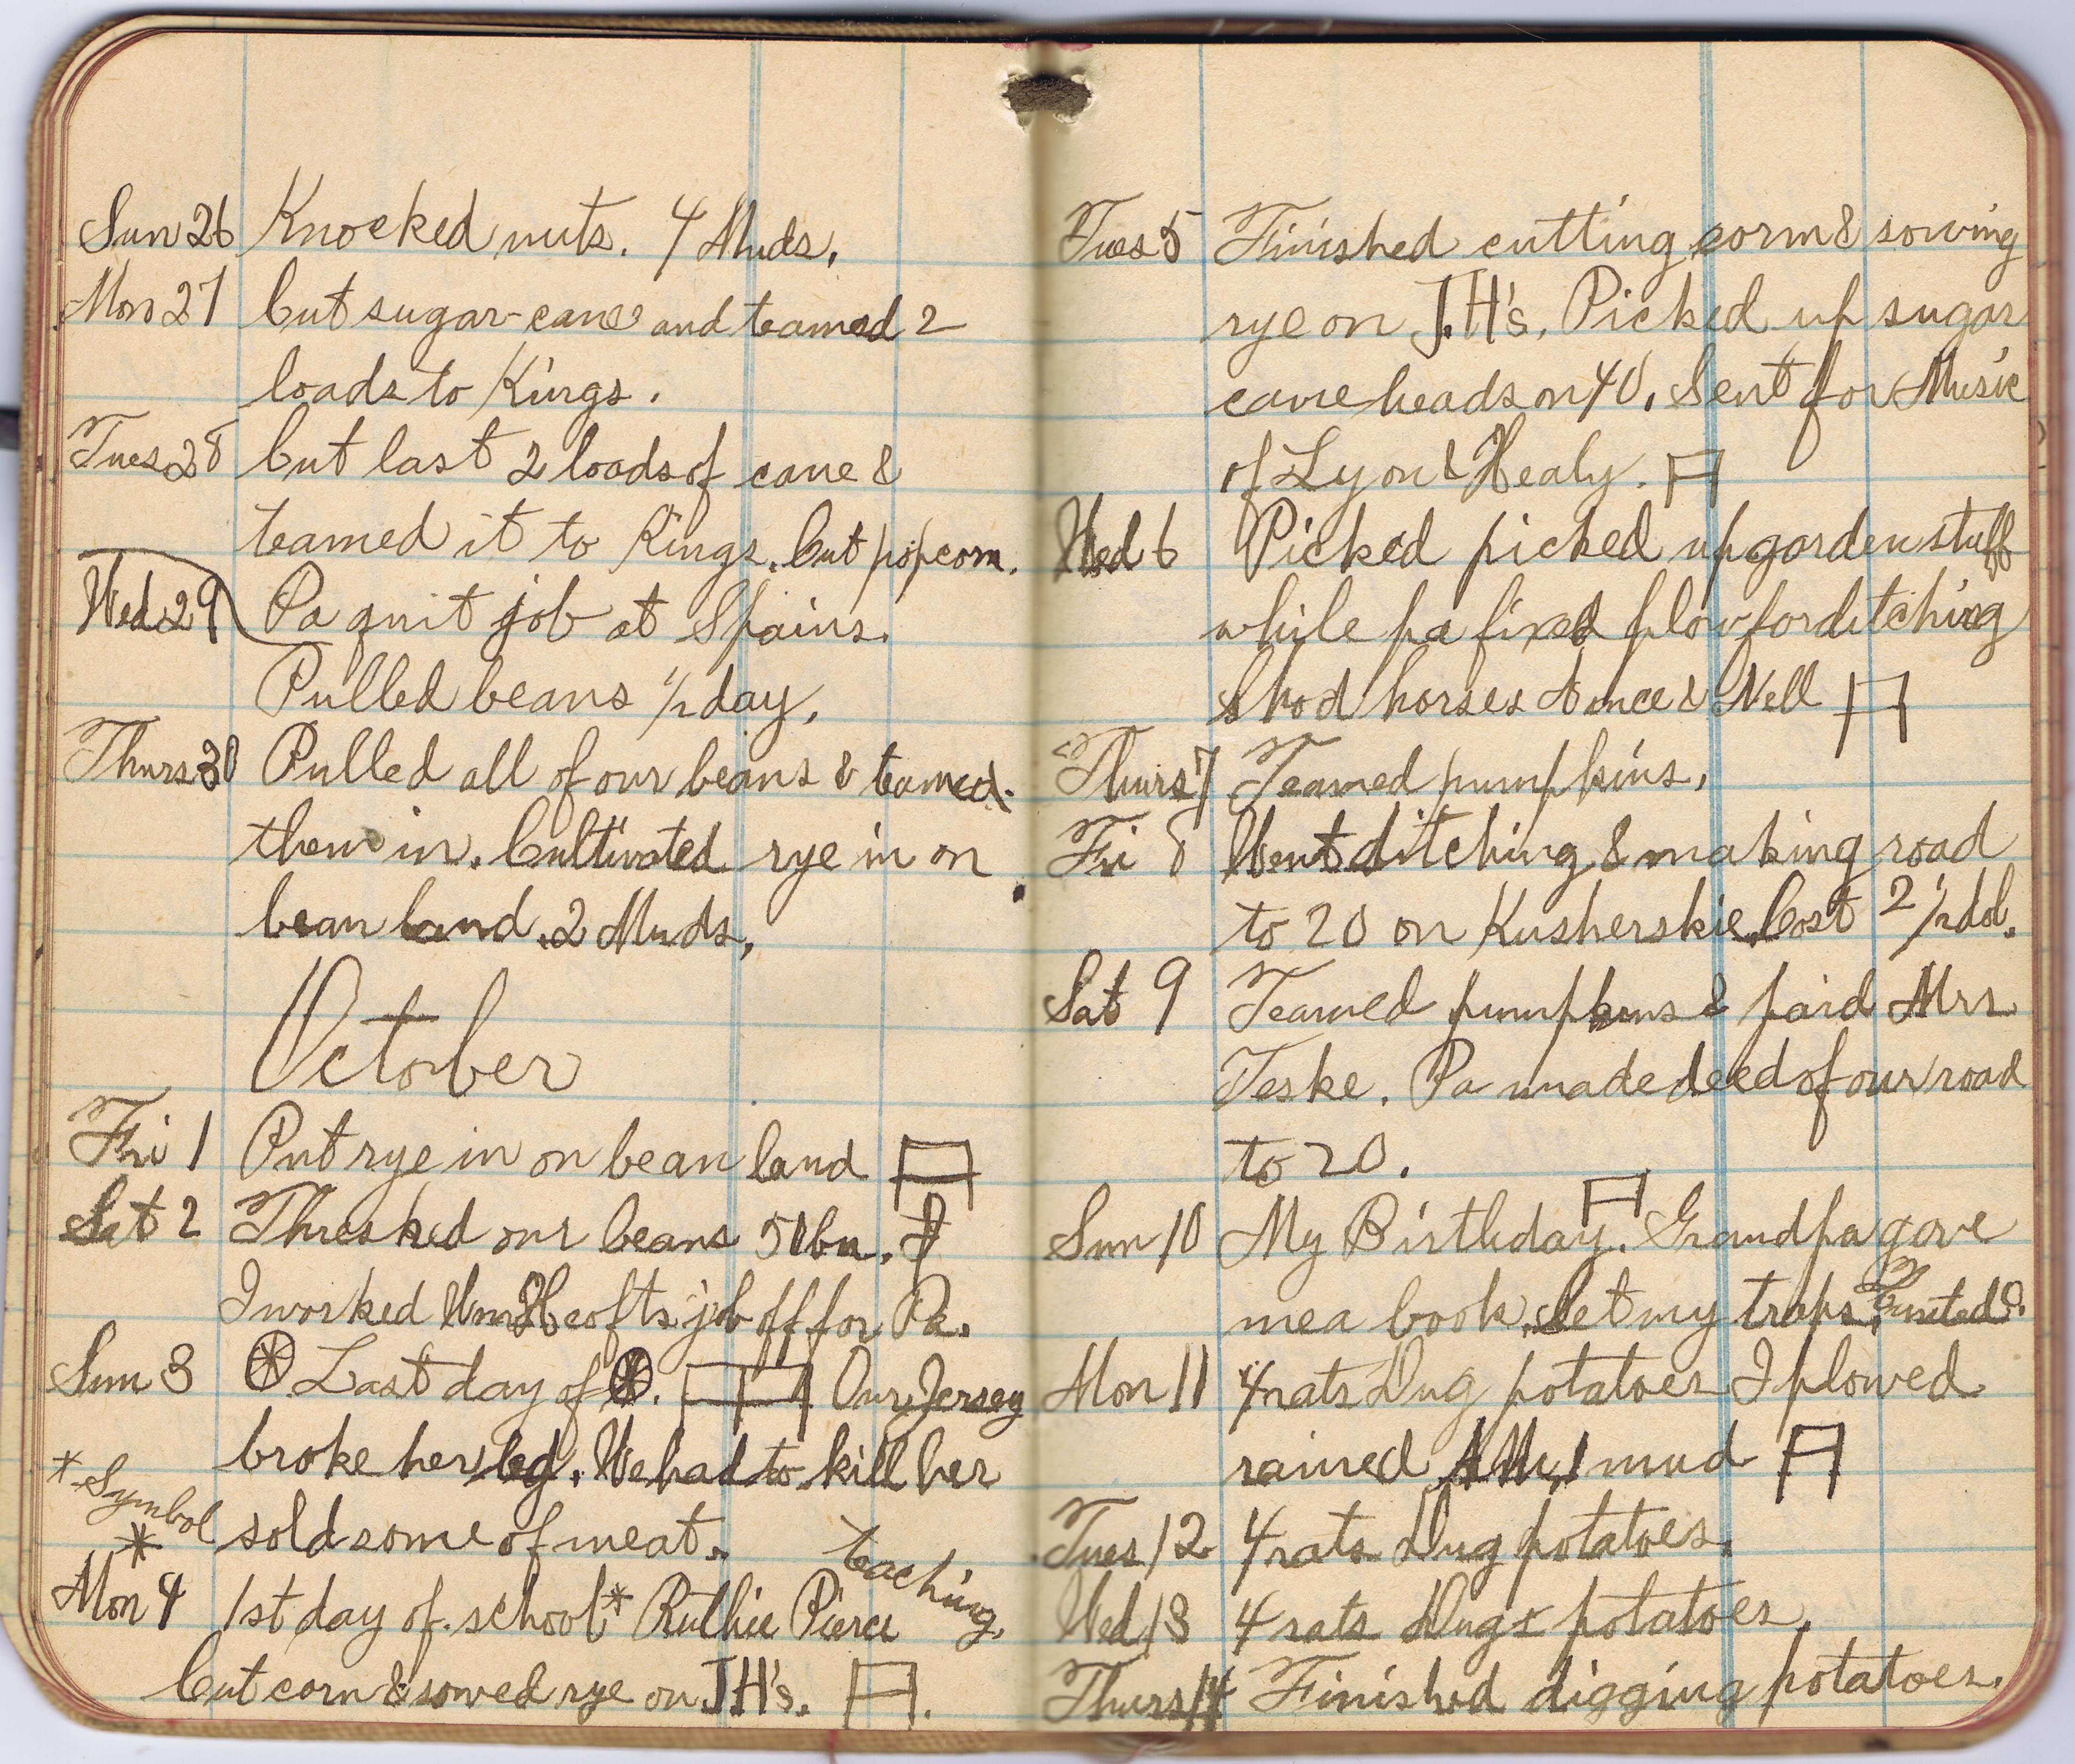 Sun 26 Knocked nuts. 4 Muds.
Mon 27 Cut sugar-cane and teamed 2
loads to Kings.
Tues 28 Cut last 2 loads of cane &
teamed it to Kings. Cut popcorn.
Wed 29 Pa quit job at Spains.
Pulled beans 1/2 day,
Thurs 30 Pulled all of our beans & teamed
them in. Cultivated rye in on
bean land. 2 Muds.
October
Fri 1 Put rye in on bean land
Sat 2 Threshed our beans 50 bu.
I worked job off for Pa.
Sun 3 Last day of . Our Jersey
broke her leg. We had to kill her
* Symbol sold some of meat.
*
teaching.
Mon 4 1st day of school* Ruthie Pierce
Cut corn & sowed rye on J.H's.
Tues 5 Finished cutting corn & sowing
rye on J.H's. Picked up sugar
cane heads on 40. Sent for Music
of Lyon & Healy.
Wed 6 Picked picked up garden stuff
while pa fixed plow for ditching
shod horses & Nell
Thurs 7 Teamed pumpkins.
Fri 8 Went ditching & making road
to 20 on Kusherskie. Cost 2 1/2 dol.
Sat 9 Teamed pumpkins & paid Mrs
Teske. Pa made deed of our road
to 20.
Sun 10 My Birthday. Grandpa gave
me a book. Set my traps.
Mon 11 4 rats Dug potatoes I plowed
rained 1 mud
Tues 12 4 rats Dug potatoes.
Wed 13 4 rats Dug potatoes.
Thurs 14 Finished digging potatoes.